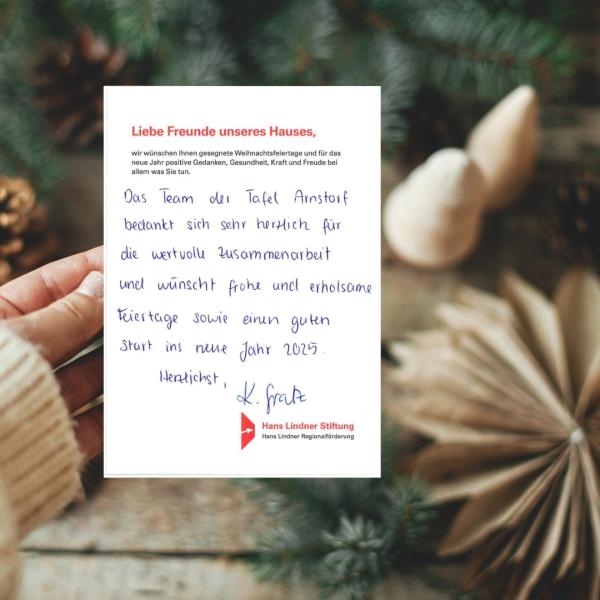 Liebe Freunde unseres Hauses,
wir wünschen Ihnen gesegnete Weihnachtsfeiertage und für das
neue Jahr positive Gedanken, Gesundheit, Kraft und Freude bei
allem was Sie tun.
Das Team der Tafel Arnstorf
bedankt sich sehr herzlich für
die wertvolle Zusammenarbeit
und wünscht frohe und erholsame
Feiertage sowie einen guten
Start ins neue Jahr 2025.
Herzlichst,
K. Gratz
Hans Lindner Stiftung
Hans Lindner Regionalförderung